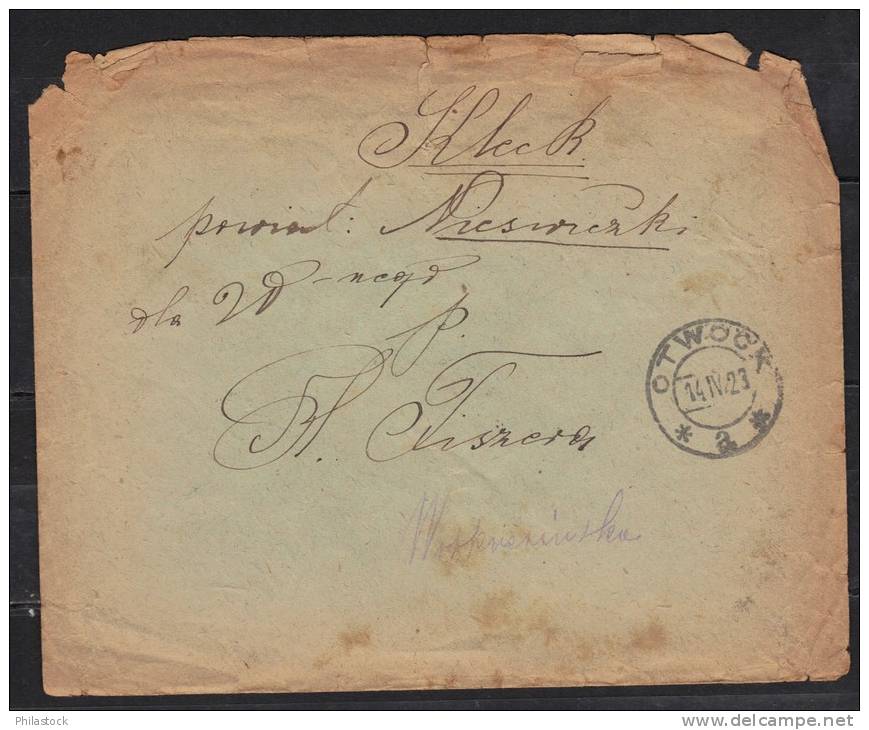 Kleck
powiat: Nieswiezki
dla W-nego
P.
H. Fiszera
OTWOCK
14 IV 23
* a *
Philastock
www.delcampe.net